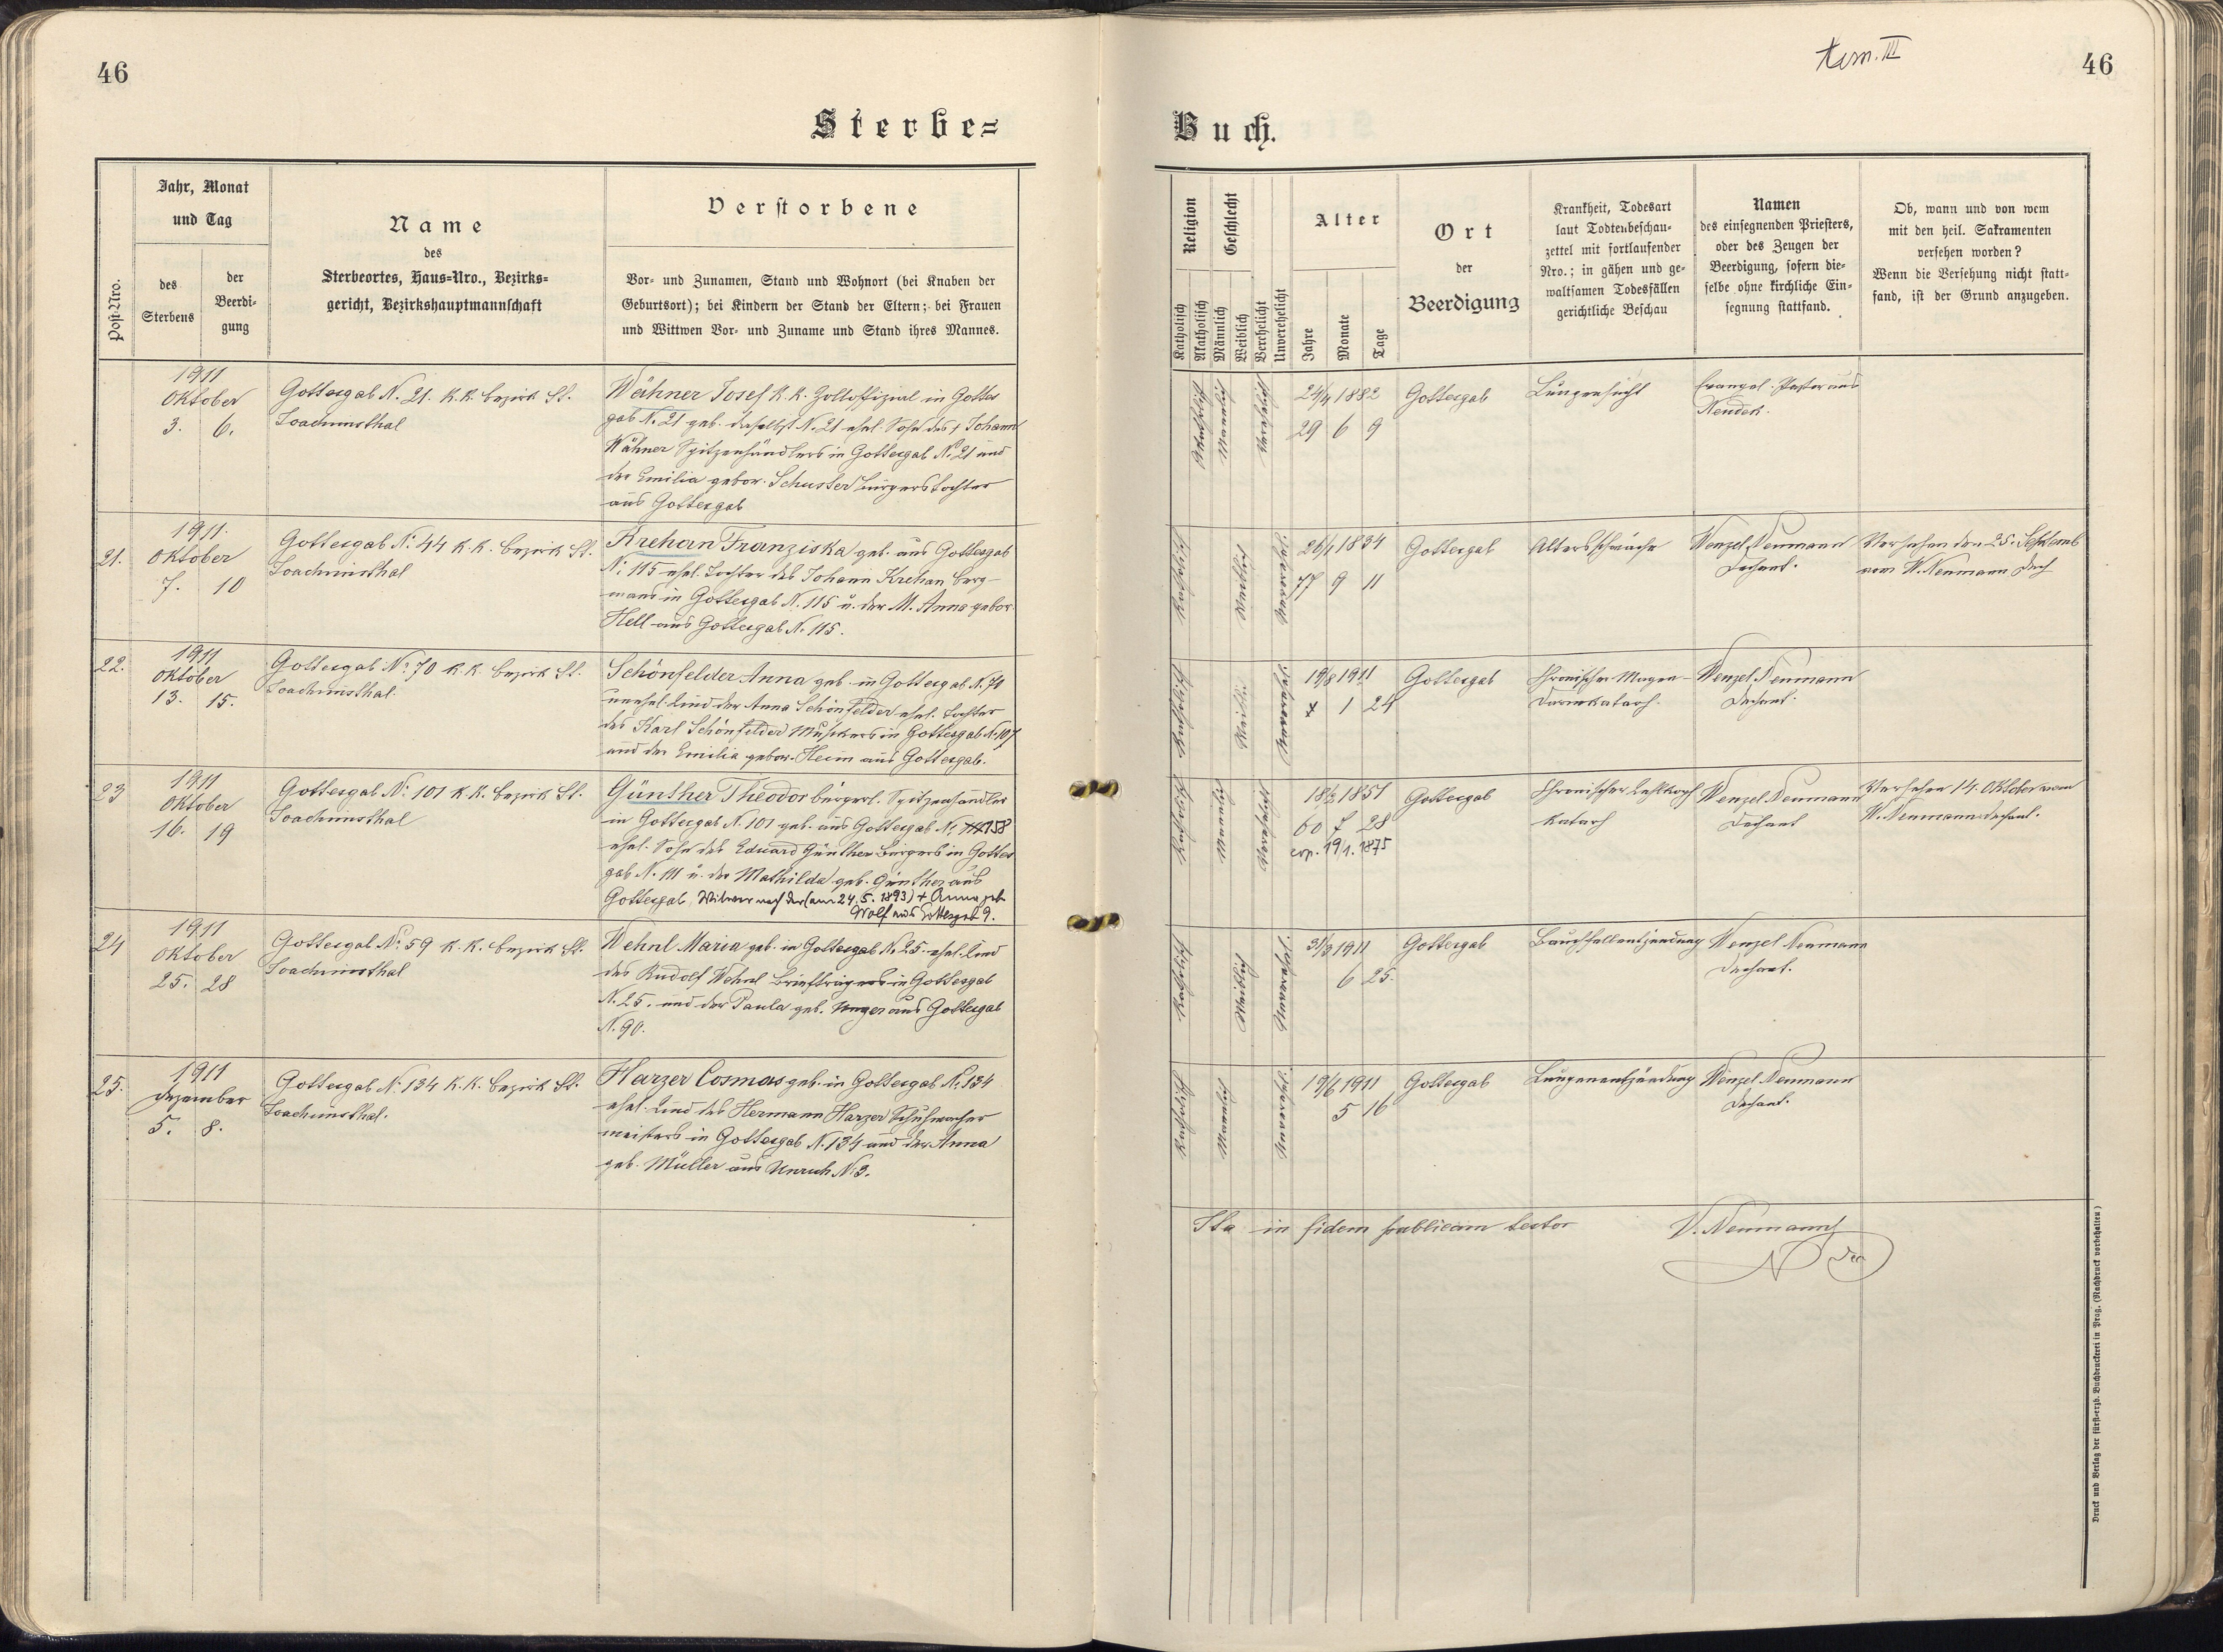 46
Sterbe=
Jahr, Monat
und Tag
Post-Nro.
des
Sterbens
der
Beerdi-
gung
Name
des
Sterbeortes, Haus=Nro., Bezirks=
gericht, Bezirkshauptmannschaft
Verstorbene
Vor- und Zunamen, Stand und Wohnort (bei Knaben der
Geburtsort); bei Kindern der Stand der Eltern; bei Frauen
und Wittwen Vor- und Zuname und Stand ihres Mannes.
1911
Oktober
3. 6.
Gottesgab N. 21. K.K. Bezirk St.
Joachimsthal
Wähner Josef K.K. Zolloffizial in Gottes
gab N. 21 geb. daselbst N. 21 ehel. Sohn des † Johann
Wähner Spitzenhändlers in Gottesgab No. 21 und
der Emilia gebor. Schuster Bürgerstochter
aus Gottesgab
21.
1911.
Oktober
7. 10
Gottesgab N: 44 K.K. Bezirk St.
Joachimsthal
Krehan Franziska geb. aus Gottesgab
N: 115 ehel. Tochter des Johann Krehan Berg-
mans in Gottesgab N. 115 u. der M. Anna gebor.
Hell aus Gottesgab N. 115.
22.
1911
Oktober
13. 15.
Gottesgab No: 70 K.K. Bezirk St.
Joachimsthal.
Schönfelder Anna geb. in Gottesgab N. 70
unehel. Kind der Anna Schönfelder ehel. Tochter
des Karl Schönfelder Musikers in Gottesgab N. 107
und der Emilia gebor. Heim aus Gottesgab.
23
1911
Oktober
16. 19
Gottesgab No: 101 K.K. Bezirk St.
Joachimsthal
Günther Theodor bürgerl. Spitzenhändler
in Gottesgab N. 101 geb. aus Gottesgab N. 158
ehel. Sohn des Eduard Günther Bürgers in Gottes
gab N. 111 u. der Mathilda geb. Günther aus
Gottesgab, Witwer nach der (am 24.5.1893) + Anna geb.
Wolf aus Gottesgab 9.
24
1911
Oktober
25. 28
Gottesgab No: 59 K.K. Bezirk St.
Joachimsthal
Wehnl Maria geb. in Gottesgab No 25. ehel. Kind
des Rudolf Wehnl Briefträgers in Gottesgab
N. 25. und der Paula geb. Unger aus Gottesgab
N. 90.
25.
1911
Dezember
5. 8.
Gottesgab N. 134 K.K. Bezirk St.
Joachimsthal.
Harzer Cosmas geb. in Gottesgab N. 134
ehel. Kind des Hermann Harzer Schuhmacher
meisters in Gottesgab N. 134 und der Anna
geb. Müller aus N: 3.
46
Buch.
Religion
Katholisch
Akatholisch
Geschlecht
Männlich
Weiblich
Verehelicht
Unverehelicht
Alter
Jahre
Monate
Tage
Ort
der
Beerdigung
Krankheit, Todesart
laut Todtenbeschau-
zettel mit fortlaufender
Nro.; in gähen und ge-
waltsamen Todesfällen
gerichtliche Beschau
Namen
des einsegnenden Priesters,
oder des Zeugen der
Beerdigung, sofern die-
selbe ohne kirchliche Ein-
segnung stattfand.
Ob, wann und von wem
mit den heil. Sakramenten
versehen worden?
Wenn die Versehung nicht statt-
fand, ist der Grund anzugeben.
Akatholisch
Männlich
Verehelicht
24/4 1882
29 6 9
Gottesgab
Lungensucht
Evangel. Pastor aus
Neudek.
Katholisch
Weiblich
Unverehelicht
26/1 1834
77 9 11
Gottesgab
Altersschwäche
Wenzel Neumann
Dechant.
Versehen den 25. Septemb
vom W. Neumann Dech
Katholisch
Weiblich
Unverehelicht
19/8 1911
1 24
Gottesgab
Chronischer Magen-
Darmkatarh.
Wenzel Neumann
Dechant.
Katholisch
Männlich
Verehelicht
18/2 1851
60 7 28
cop. 19/1. 1875
Gottesgab
Chronischer Kehlkopf
Katarh
Wenzel Neumann
Dechant
Versehen 14. Oktober vom
W. Neumann Dechant.
Katholisch
Weiblich
Unverehelicht
31/3 1911
6 25.
Gottesgab
Bauchfellentzündung
Wenzel Neumann
Dechant.
Katholisch
Männlich
Unverehelicht
19/6 1911
5 16
Gottesgab
Lungenentzündung
Wenzel Neumann
Dechant.
Ita in fidem publicam testor
W. Neumann
Druck und Verlag der fürst-erzb. Buchdruckerei in Prag. (Nachdruck vorbehalten)